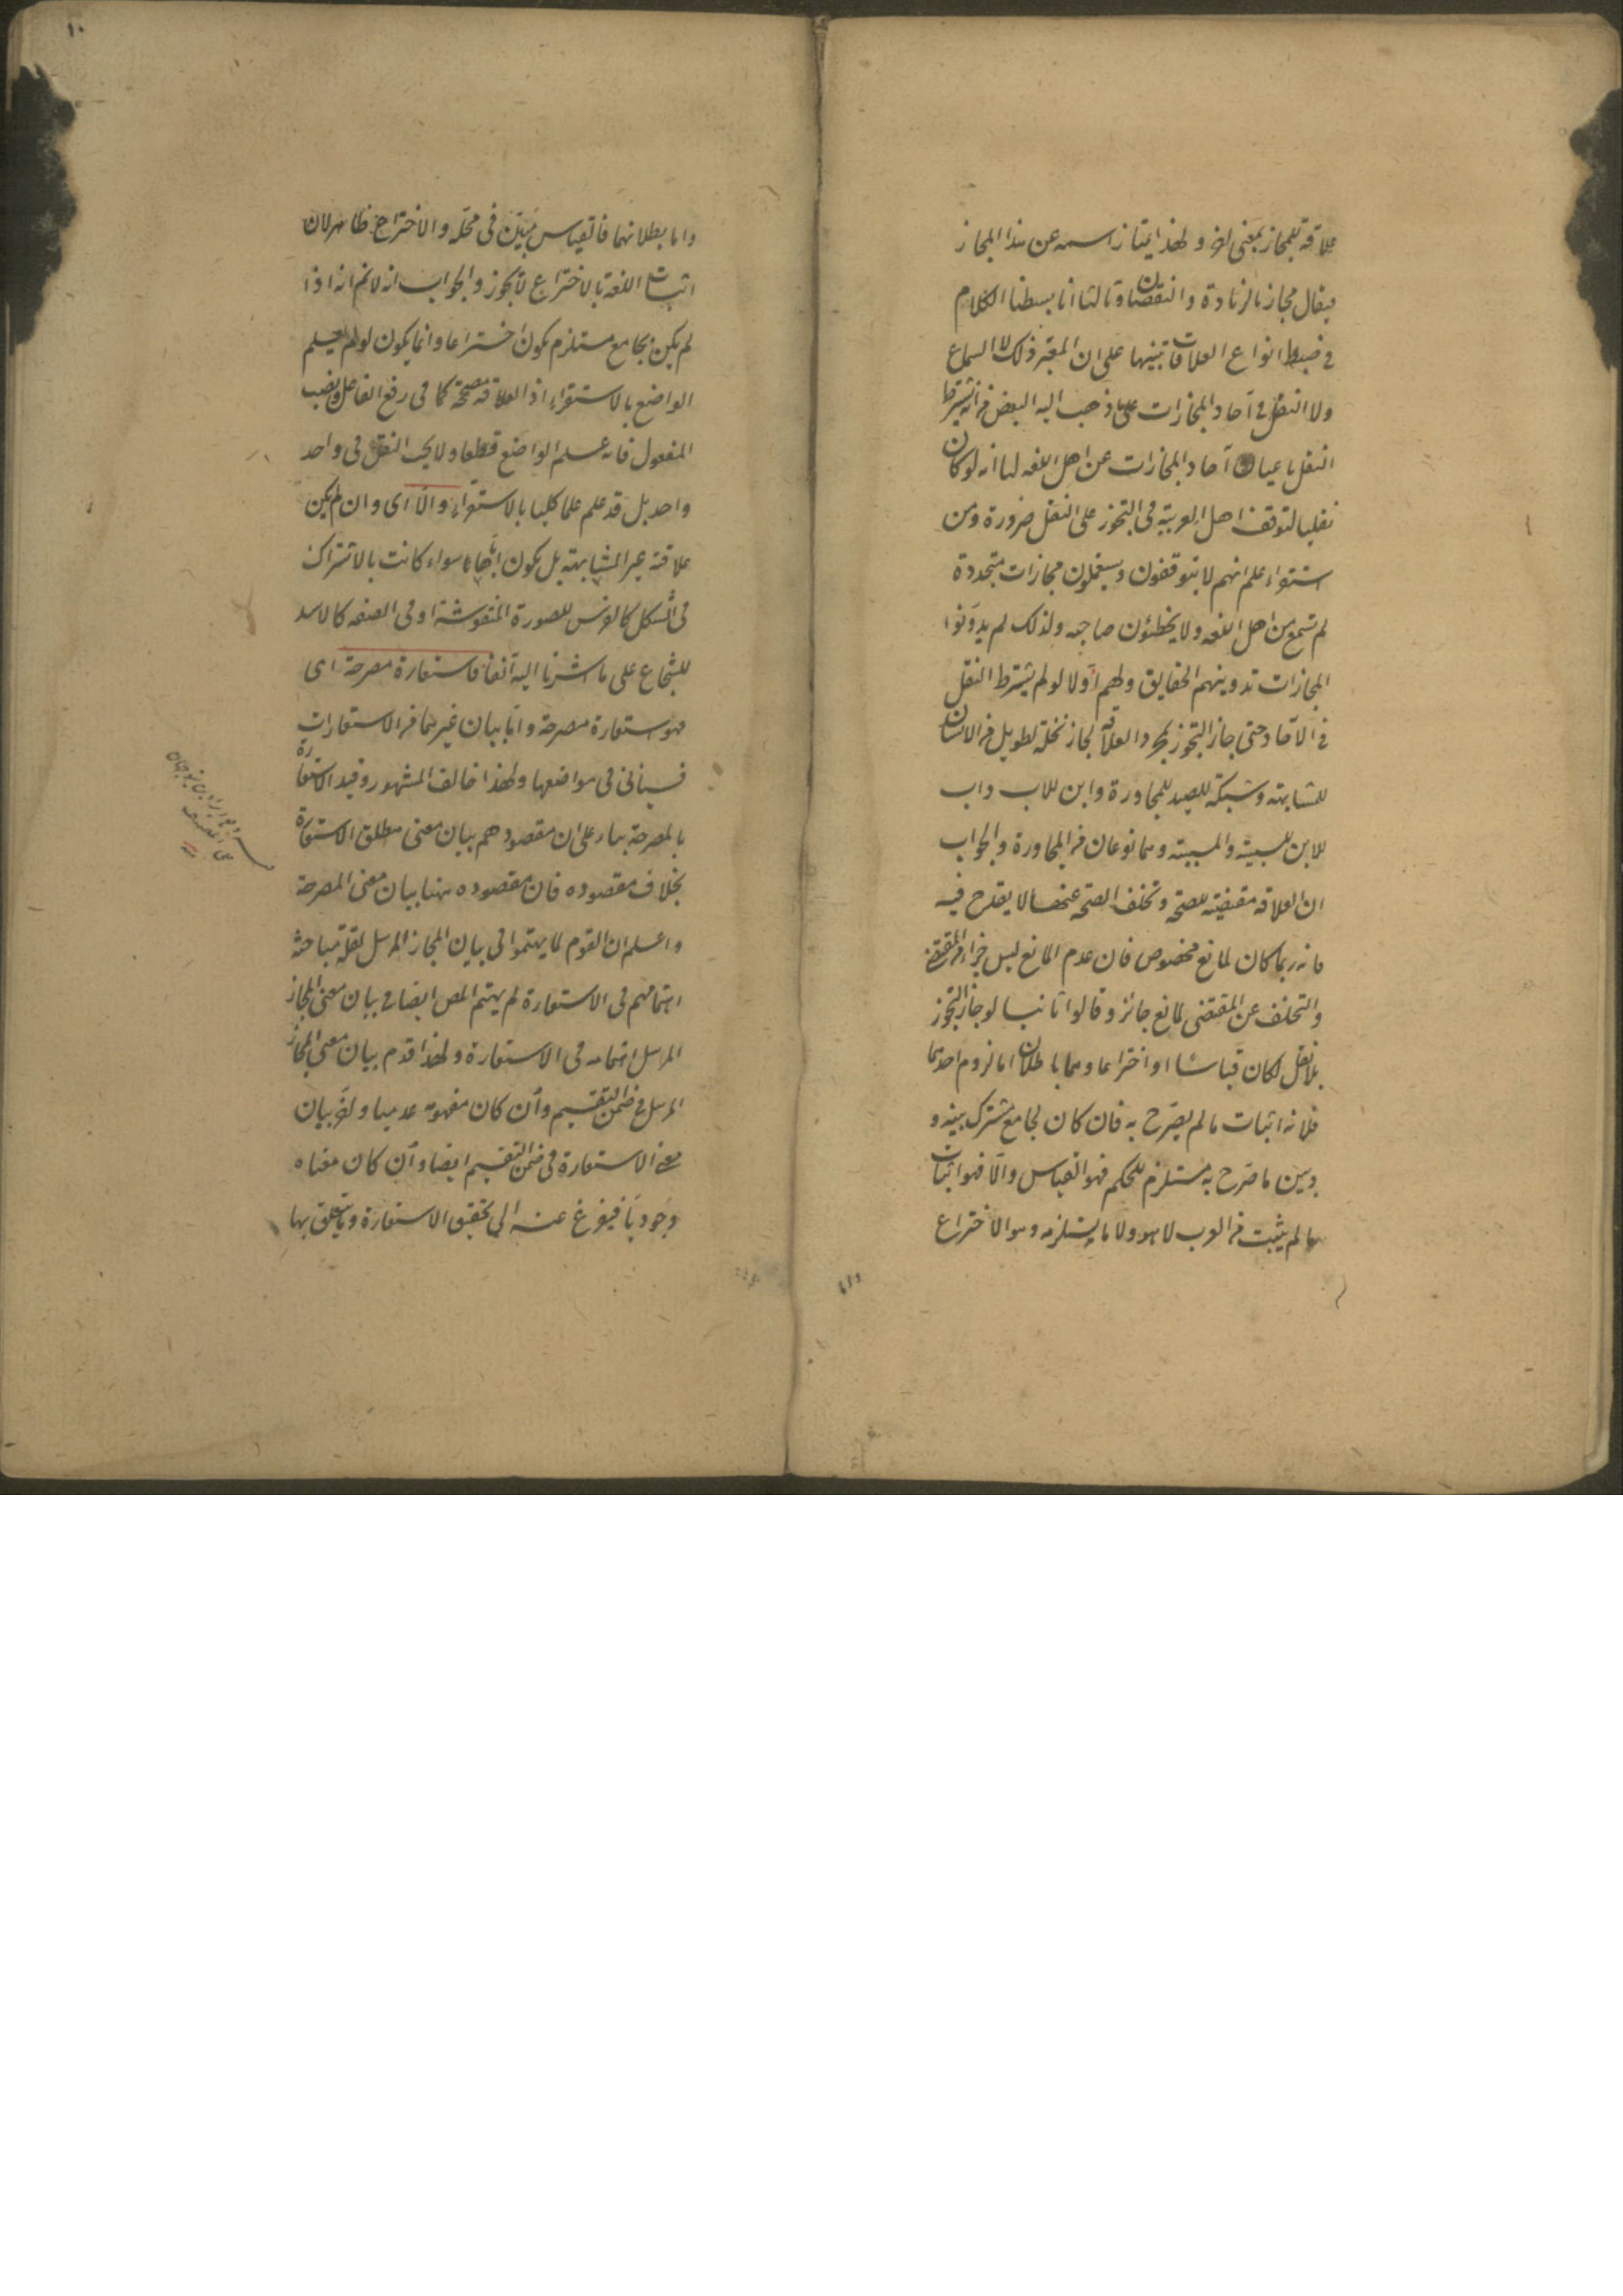 علاقة للمجاز بمعنى اخر ولهذا يمتاز اسمه عن هذا المجاز
فيقال مجاز بالزيادة والنقصان وثالثا انا بسطنا الكلام
في ضبط انواع العلاقات تنبيها على ان المعتبر ذلك لا السماع
ولا النقل في آحاد المجازات على ما ذهب اليه البعض من انه يشترط
النقل باعيان آحاد المجازات عن اهل اللغة لنا انه لو كان
نقليا لتوقف اهل العربية في التجوز على النقل ضرورة ومن
استقراء علم انهم لا يتوقفون ويستعملون مجازات متجددة
لم تسمع من اهل اللغة ولا يخطئون صاحبه ولذلك لم يدونوا
المجازات تدوينهم الحقايق ولهم اولا لو لم يشترط النقل
في الآحاد حتى جاز التجوز بمجرد العلاقة لجاز نخلة لطويل غير الانسان
للمشابهة وشبكة للصيد للمجاورة وابن للاب واب
للابن للسببية والمسببية وهما نوعان من المجاورة والجواب
ان العلاقة مقتضية للصحة وتخلف الصحة عنها لا يقدح فيه
فانه ربما كان لمانع مخصوص فان عدم المانع ليس جزاء من المقتضى
والتخلف عن المقتضى لمانع جائز وقالوا ثانيا لو جاز التجوز
بلا نقل لكان قياسا او اختراعا وهما باطلان اما لزوم احدهما
فلانه اثبات ما لم يصرح به فان كان لجامع مشترك بينه و
وبين ما صرح به مستلزم للحكم فهو القياس والا فهو اثبات
ما لم يثبت من العرب لا هو ولا ما يستلزمه وهو الاختراع
واما
واما بطلانهما فالقياس مبين في محله والاختراع ظاهر لان
اثبات اللغة بالاختراع لا يجوز والجواب انه لانم انه اذا
لم يكن بجامع مستلزم يكون اختراعا وانما يكون لو لم يعلم
الواضع بالاستقراء اذ العلاقة مصححة كما في رفع الفاعل ونصب
المفعول فانه علم الواضع قطعا ولا يجب النقل في واحد
واحد بل قد علم علما كليا بالاستقراء والا اى وان لم يكن
علاقة غير المشابهة بل يكون اياها سواء كانت بالاشتراك
في الشكل كالفرس للصورة المنقوشة او في الصفة كالاسد
للشجاع على ما اشرنا اليه آنفا فاستعارة مصرحة اى
فهو استعارة مصرحة واما بيان غيرهما من الاستعارات
فسياتي في مواضعها ولهذا خالف المشهور وقيد الاستعارة
بالمصرحة بناء على ان مقصودهم بيان معنى مطلق الاستعارة
بخلاف مقصوده فان مقصوده هنا بيان معنى المصرحة
واعلم ان القوم لما يهتموا في بيان المجاز المرسل لقلة مباحثه
اهتمامهم في الاستعارة لم يهتم المص ايضا في بيان معنى المجاز
المرسل اهتمامه في الاستعارة ولهذا قدم بيان معنى المجاز
المرسل في ضمن التقسيم وان كان مفهومه عدميا واخر بيان
معنى الاستعارة في ضمن التقسيم ايضا وان كان معناه
وجوديا فيفرغ عنه الى تحقيق الاستعارة وما يتعلق بها
١٠